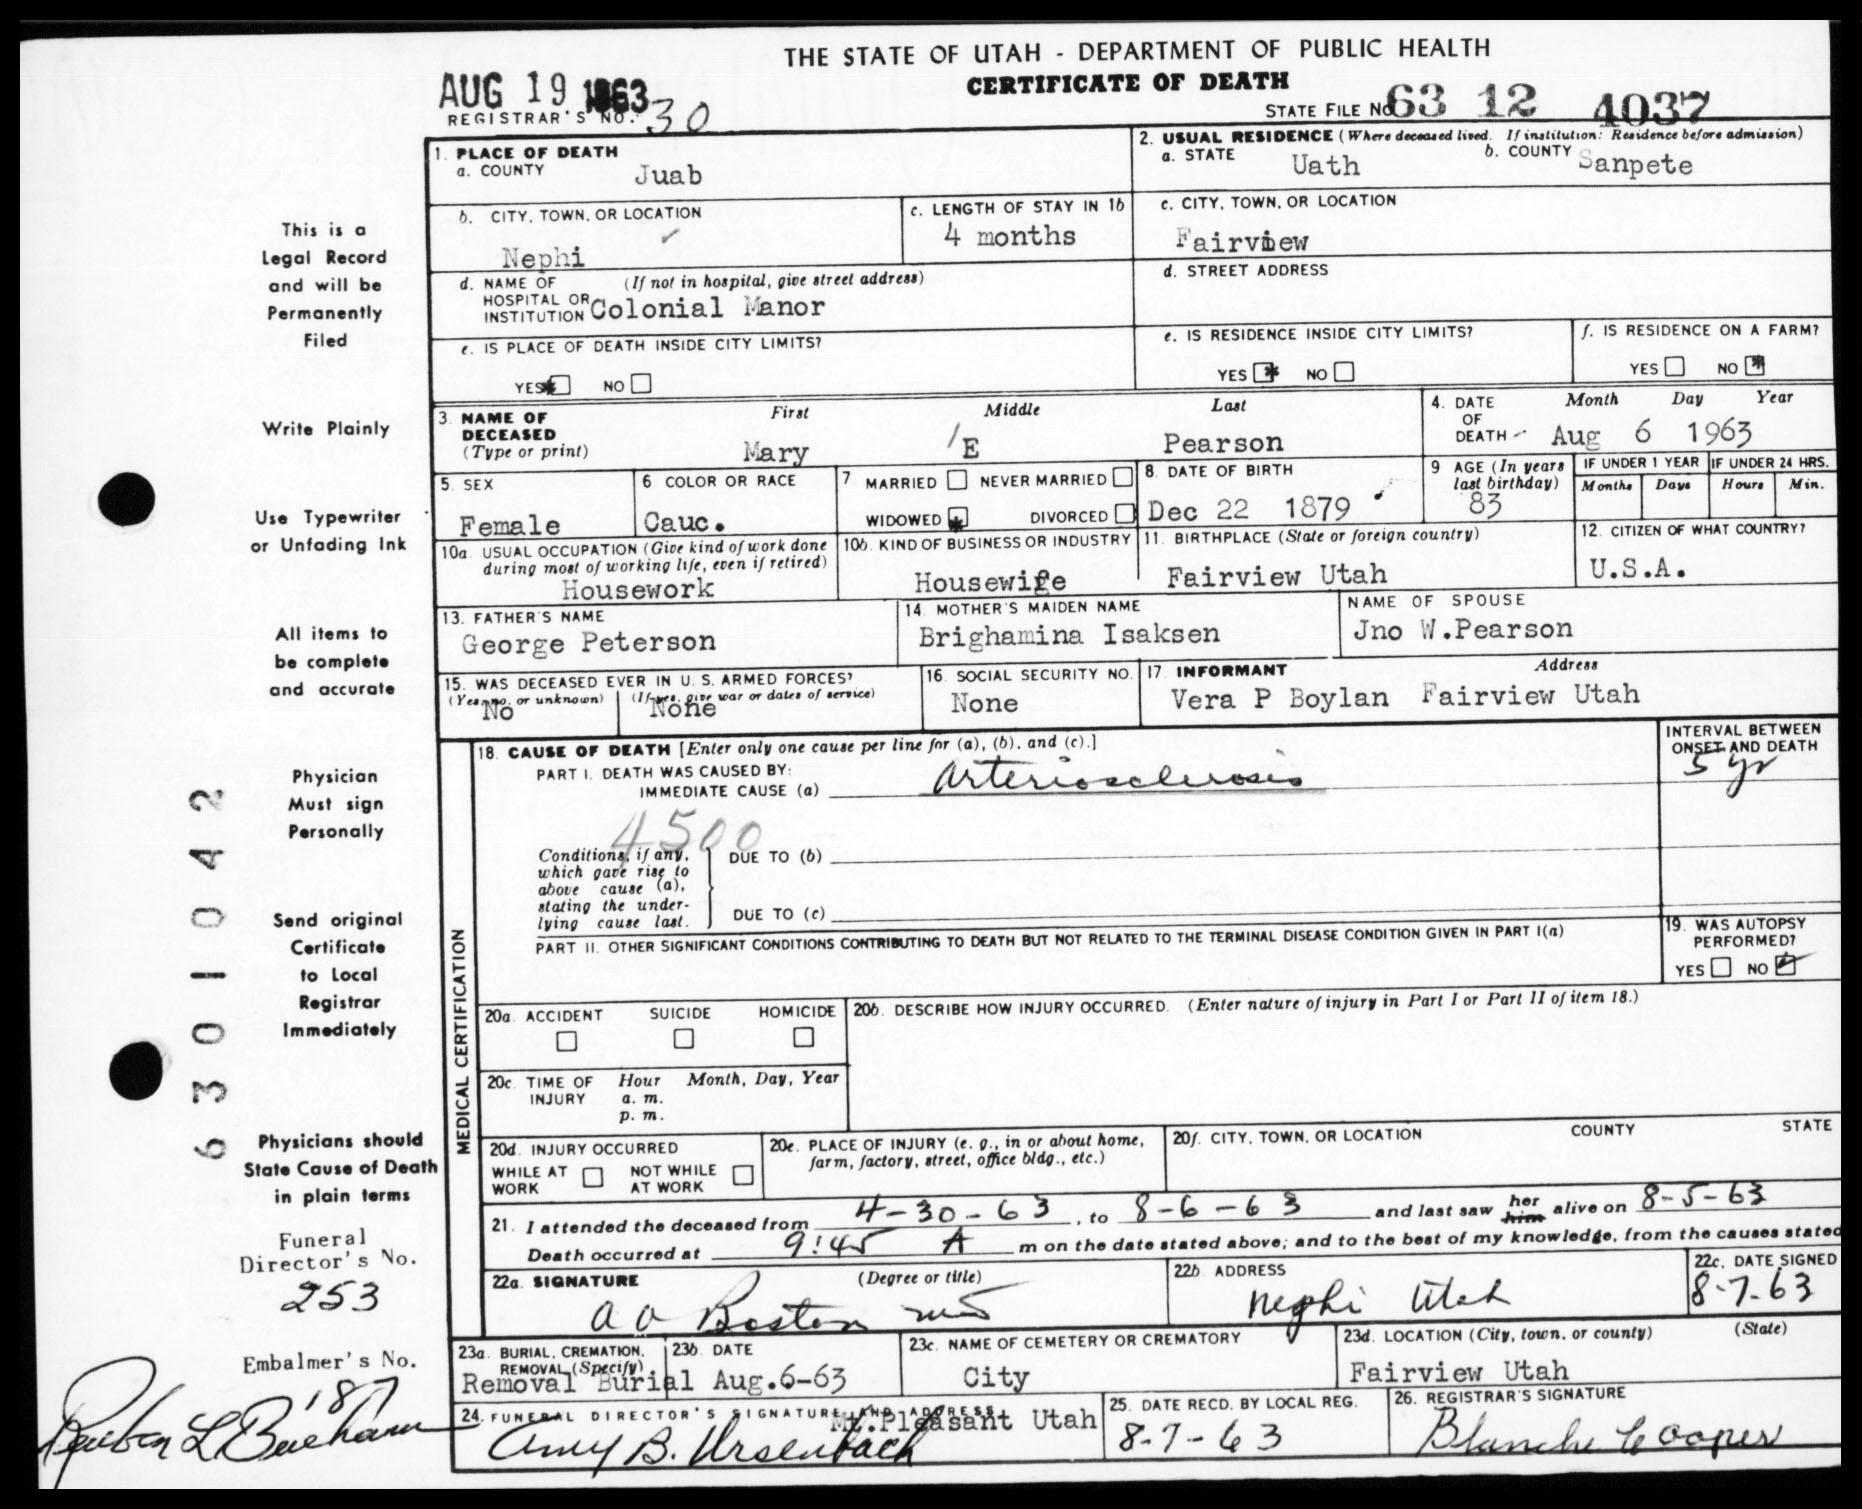 THE STATE OF UTAH - DEPARTMENT OF PUBLIC HEALTH
CERTIFICATE OF DEATH
AUG 19 1963
REGISTRAR'S NO. 30
STATE FILE NO. 63 12 4037
1. PLACE OF DEATH
a. COUNTY Juab
2. USUAL RESIDENCE (Where deceased lived. If institution: Residence before admission)
a. STATE Uath b. COUNTY Sanpete
b. CITY, TOWN, OR LOCATION Nephi
c. LENGTH OF STAY IN 1b 4 months
c. CITY, TOWN, OR LOCATION Fairview
d. NAME OF HOSPITAL OR INSTITUTION (If not in hospital, give street address) Colonial Manor
d. STREET ADDRESS
e. IS PLACE OF DEATH INSIDE CITY LIMITS?
YES NO
e. IS RESIDENCE INSIDE CITY LIMITS?
YES * NO
f. IS RESIDENCE ON A FARM?
YES NO *
3. NAME OF DECEASED (Type or print)
First Middle Last
Mary E Pearson
4. DATE OF DEATH Month Day Year
Aug 6 1963
5. SEX Female
6. COLOR OR RACE Cauc.
7 MARRIED NEVER MARRIED
WIDOWED * DIVORCED
8. DATE OF BIRTH Dec 22 1879
9 AGE (In years last birthday) 83
IF UNDER 1 YEAR Months Days
IF UNDER 24 HRS. Hours Min.
10a. USUAL OCCUPATION (Give kind of work done during most of working life, even if retired) Housework
10b. KIND OF BUSINESS OR INDUSTRY Housewife
11. BIRTHPLACE (State or foreign country) Fairview Utah
12. CITIZEN OF WHAT COUNTRY? U.S.A.
13. FATHER'S NAME George Peterson
14. MOTHER'S MAIDEN NAME Brighamina Isaksen
NAME OF SPOUSE Jno W.Pearson
15. WAS DECEASED EVER IN U. S. ARMED FORCES?
(Yes, no, or unknown) No (If yes, give war or dates of service) None
16. SOCIAL SECURITY NO. None
17. INFORMANT Address
Vera P Boylan Fairview Utah
MEDICAL CERTIFICATION
18. CAUSE OF DEATH [Enter only one cause per line for (a), (b), and (c).]
INTERVAL BETWEEN ONSET AND DEATH
PART I. DEATH WAS CAUSED BY:
IMMEDIATE CAUSE (a) Arteriosclerosis 5 yr
4500
Conditions, if any, which gave rise to above cause (a), stating the underlying cause last.
DUE TO (b)
DUE TO (c)
PART II. OTHER SIGNIFICANT CONDITIONS CONTRIBUTING TO DEATH BUT NOT RELATED TO THE TERMINAL DISEASE CONDITION GIVEN IN PART I(a)
19. WAS AUTOPSY PERFORMED?
YES NO
20a. ACCIDENT SUICIDE HOMICIDE
20b. DESCRIBE HOW INJURY OCCURRED. (Enter nature of injury in Part I or Part II of item 18.)
20c. TIME OF INJURY Hour Month, Day, Year
a. m.
p. m.
20d. INJURY OCCURRED
WHILE AT WORK NOT WHILE AT WORK
20e. PLACE OF INJURY (e. g., in or about home, farm, factory, street, office bldg., etc.)
20f. CITY, TOWN, OR LOCATION COUNTY STATE
21. I attended the deceased from 4-30-63, to 8-6-63 and last saw her him alive on 8-5-63
Death occurred at 9:45 A m on the date stated above; and to the best of my knowledge, from the causes stated
22a. SIGNATURE (Degree or title)
A O Boston MD
22b. ADDRESS
Nephi Utah
22c. DATE SIGNED
8-7-63
23a. BURIAL, CREMATION, REMOVAL (Specify) Removal Burial
23b. DATE Aug.6-63
23c. NAME OF CEMETERY OR CREMATORY City
23d. LOCATION (City, town, or county) (State)
Fairview Utah
24. FUNERAL DIRECTOR'S SIGNATURE AND ADDRESS
Mt.Pleasant Utah
Amy B. Ursenbach
25. DATE RECD. BY LOCAL REG.
8-7-63
26. REGISTRAR'S SIGNATURE
Blanche Cooper
This is a
Legal Record
and will be
Permanently
Filed
Write Plainly
Use Typewriter
or Unfading Ink
All items to
be complete
and accurate
Physician
Must sign
Personally
Send original
Certificate
to Local
Registrar
Immediately
Physicians should
State Cause of Death
in plain terms
Funeral
Director's No.
253
Embalmer's No.
187
6301042